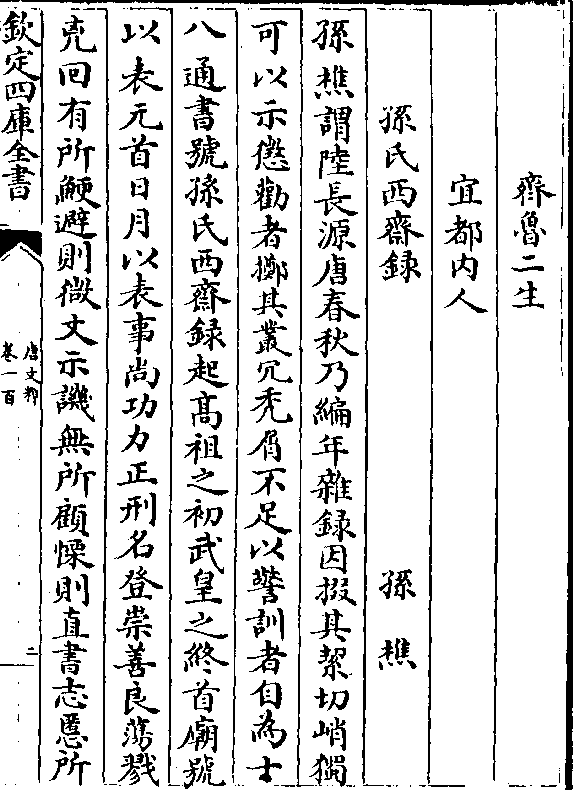 齊魯二生
宜都內人
孫氏西齋録　孫樵
孫樵謂陸長源唐春秋乃編年雜録因掇其絜切峭獨
可以示懲勸者擲其叢冗秃屑不足以警訓者自為十
八通書號孫氏西齋録起髙祖之初武皇之終首廟號
以表元首日月以表事尚功力正刑名登崇善良蕩戮
兇回有所鯁避則微文示譏無所顧慄則直書志慝所
欽定四庫全書
唐文粹
卷一百
二